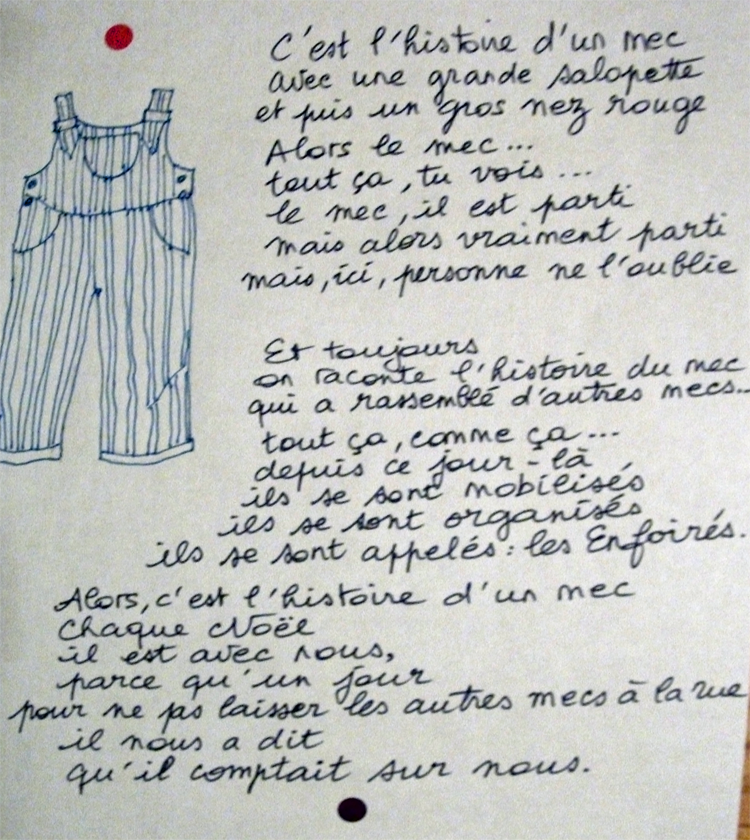 C'est l'histoire d'un mec
avec une grande salopette
et puis un gros nez rouge
Alors le mec...
tout ça, tu vois...
le mec, il est parti
mais alors vraiment parti
mais, ici, personne ne l'oublie
Et toujours
on raconte l'histoire du mec
qui a rassemblé d'autres mecs...
tout ça, comme ça...
depuis ce jour-là
ils se sont mobilisés
ils se sont organisés
ils se sont appelés : les Enfoirés.
Alors, c'est l'histoire d'un mec
Chaque Noël
il est avec nous,
parce qu'un jour
pour ne pas laisser les autres mecs à la rue
il nous a dit
qu'il comptait sur nous.